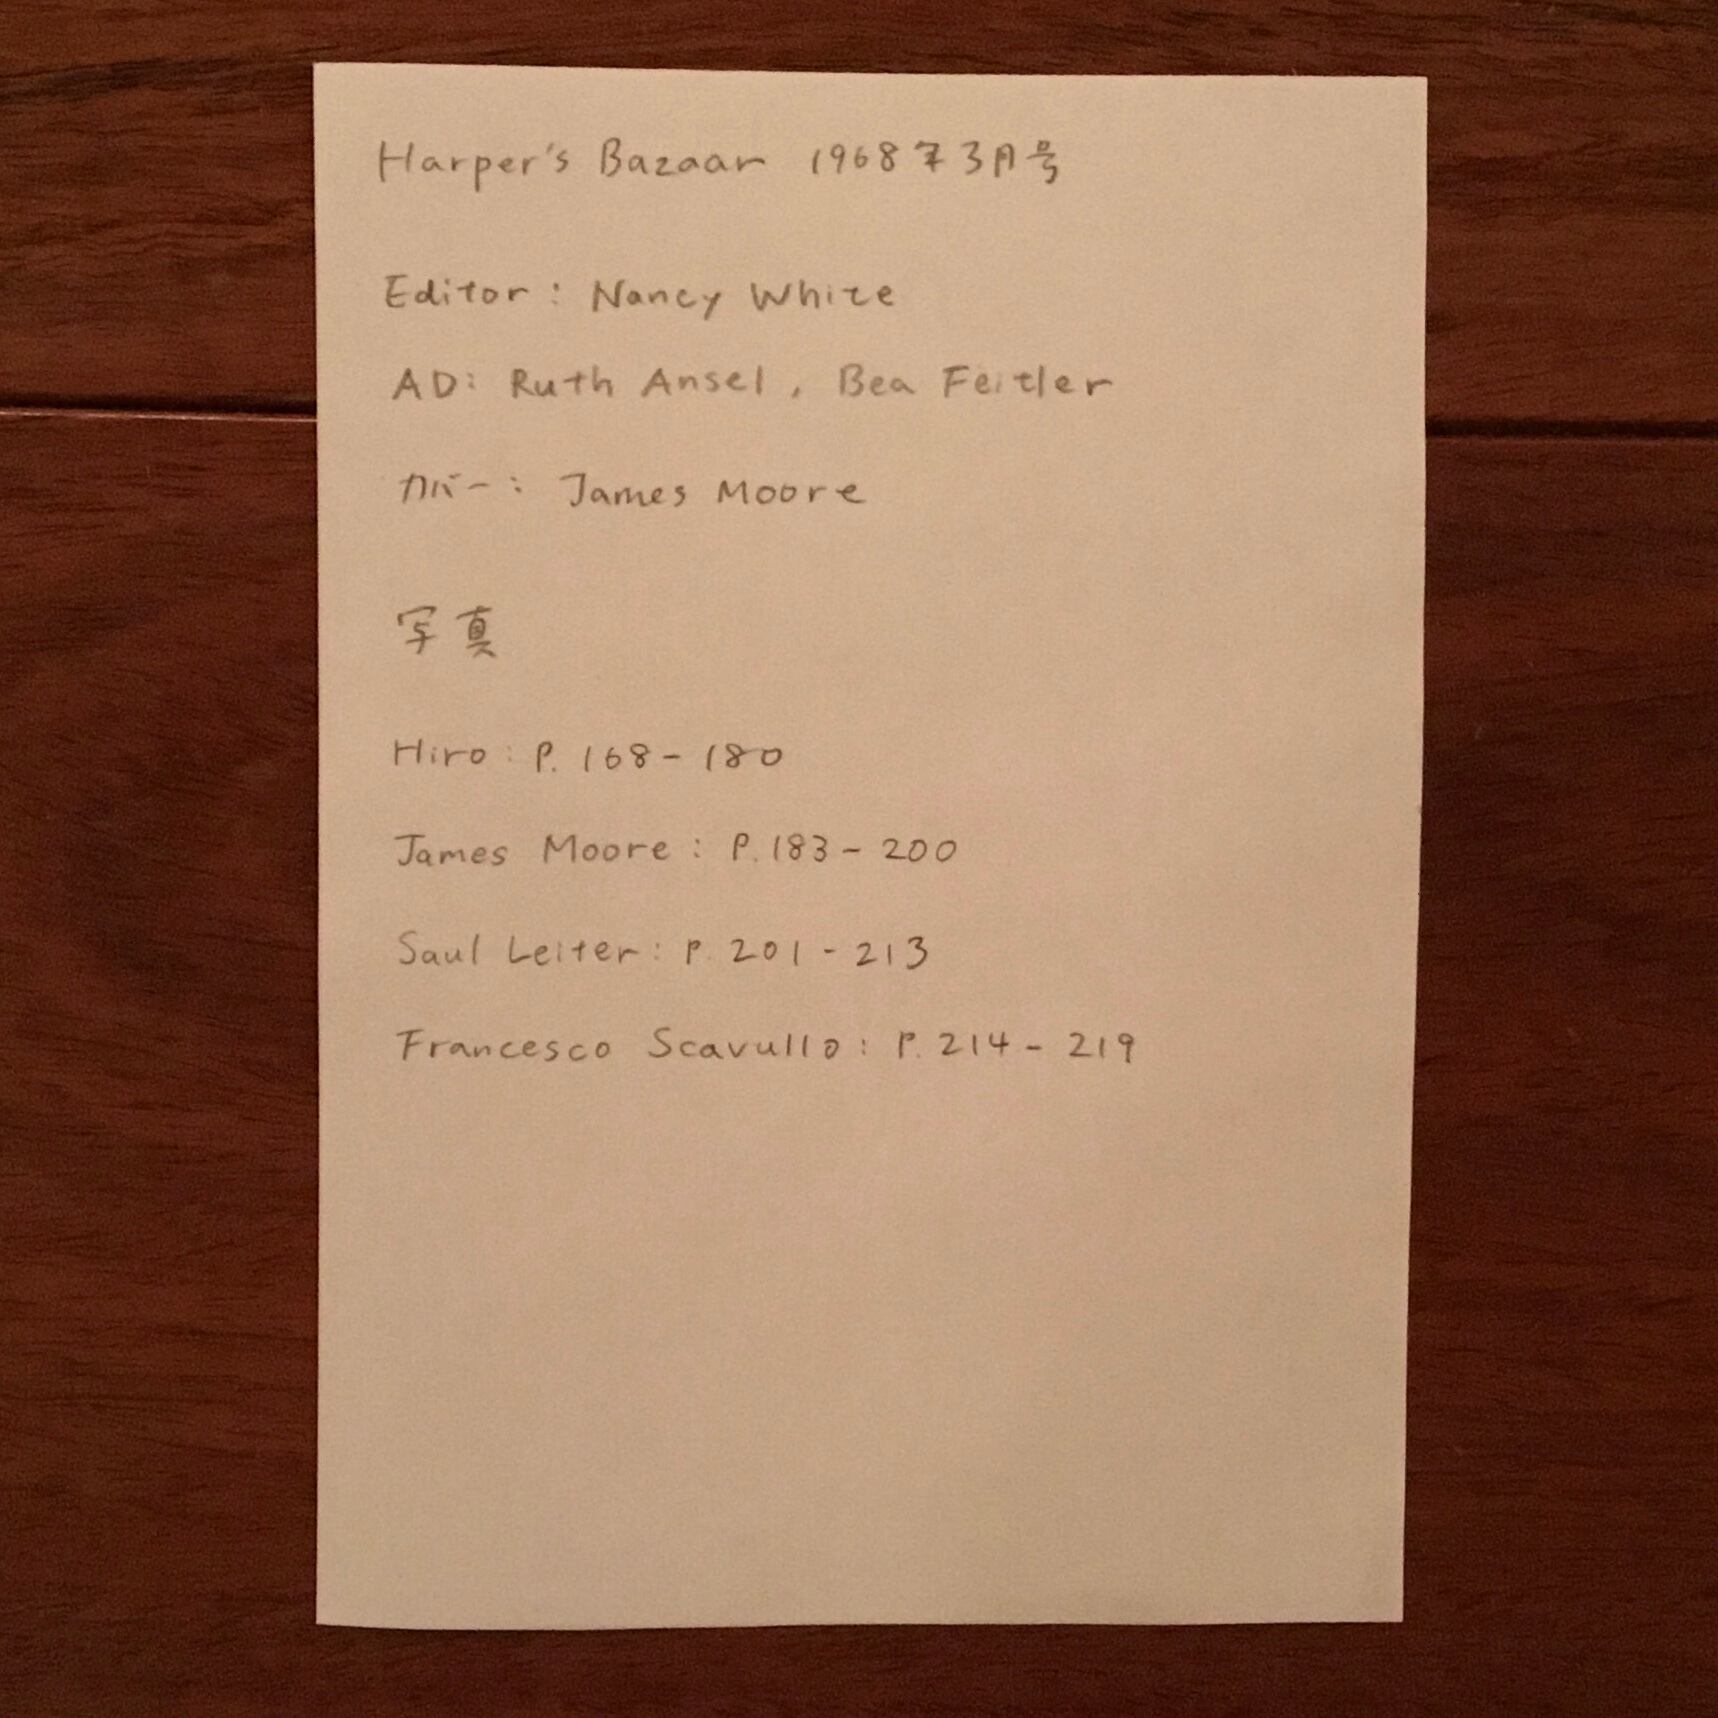 Harper's Bazaar 1968年3月号
Editor: Nancy White
AD: Ruth Ansel, Bea Feitler
カバー: James Moore
写真
Hiro: P. 168-180
James Moore: P. 183-200
Saul Leiter: P. 201-213
Francesco Scavullo: P. 214-219